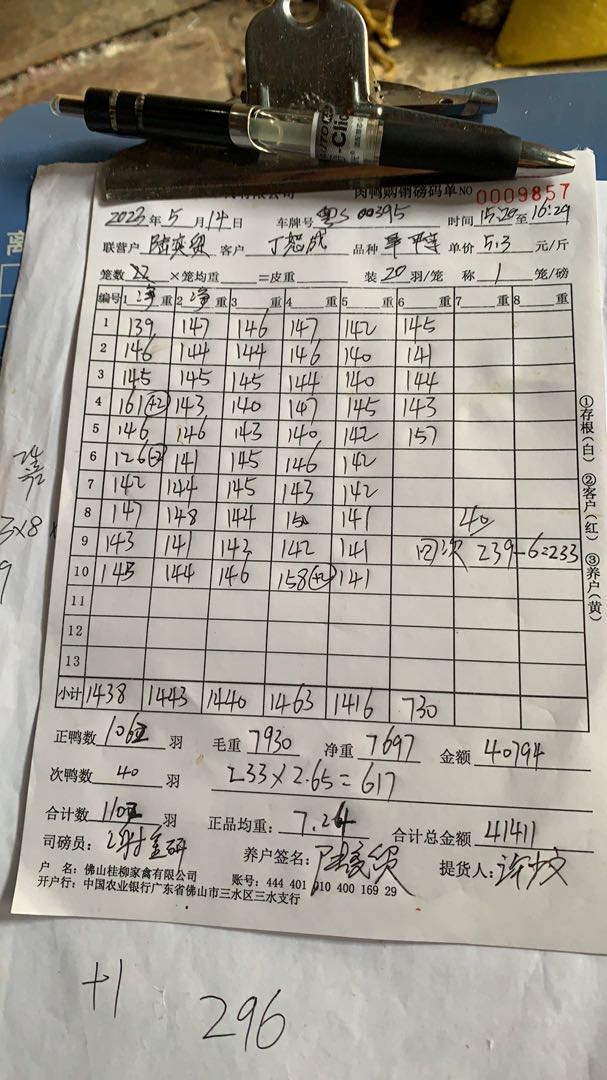 有限公司 肉鸭购销磅码单 NO 0009857
2023年5月14日 车牌号 粤S 00395 时间 15:20至16:29
联营户 客户 品种 单价 5.3 元/斤
笼数 22 ×笼均重 =皮重 装 20 羽/笼 称 1 笼/磅
编号 1 净重 2 净重 3 重 4 重 5 重 6 重 7 重 8 重
1 139 147 146 147 142 145
2 146 144 144 146 140 141
3 145 145 145 144 140 144
4 161(+2) 143 140 147 145 143
5 146 146 143 140 142 157
6 126(-2) 141 145 146 142
7 142 144 145 143 142
8 147 148 144 150 141 40
9 143 141 142 142 141 回次 239-6=233
10 143 144 146 158(+2) 141
11
12
13
小计 1438 1443 1440 1463 1416 730
正鸭数 羽 毛重 7930 净重 7697 金额 40794
次鸭数 40 羽 233×2.65=617
合计数 羽 正品均重: 7.24 合计总金额 41411
司磅员: 养户签名: 提货人:
户 名: 佛山桂柳家禽有限公司 账号: 444 401 010 400 169 29
开户行: 中国农业银行广东省佛山市三水区三水支行
①存根(白) ②客户(红) ③养户(黄)
+1 296